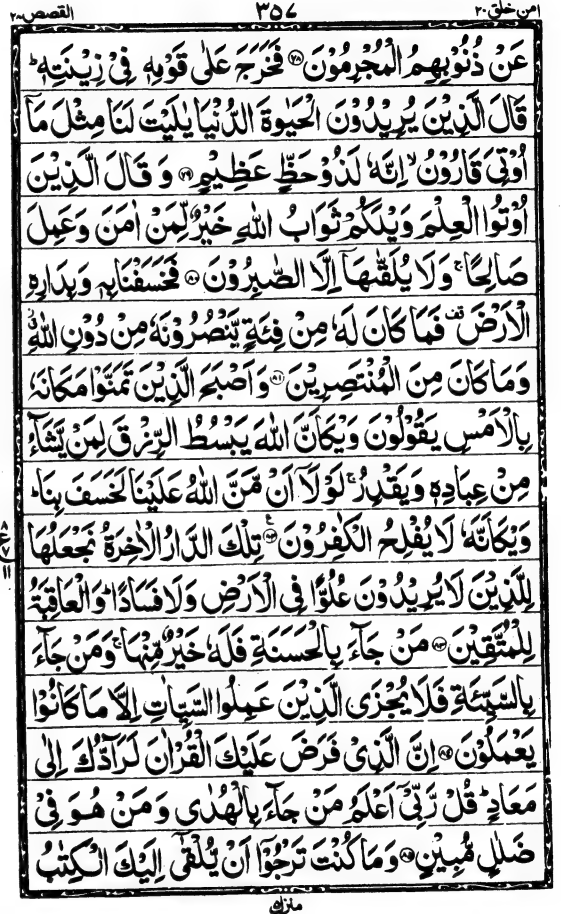 امن خلق ۲۰ ۳۵۷ القصص ۲۸
عَنْ ذُنُوْبِهِمُ الْمُجْرِمُوْنَ ﴿۷۸﴾ فَخَرَجَ عَلٰى قَوْمِهٖ فِیْ زِیْنَتِهٖ ؕ
قَالَ الَّذِیْنَ یُرِیْدُوْنَ الْحَیٰوةَ الدُّنْیَا یٰلَیْتَ لَنَا مِثْلَ مَاۤ
اُوْتِیَ قَارُوْنُ ۙ اِنَّهٗ لَذُوْ حَظٍّ عَظِیْمٍ ﴿۷۹﴾ وَ قَالَ الَّذِیْنَ
اُوْتُوا الْعِلْمَ وَیْلَكُمْ ثَوَابُ اللّٰهِ خَیْرٌ لِّمَنْ اٰمَنَ وَ عَمِلَ
صَالِحًا ۚ وَ لَا یُلَقّٰىهَاۤ اِلَّا الصّٰبِرُوْنَ ﴿۸۰﴾ فَخَسَفْنَا بِهٖ وَ بِدَارِهِ
الْاَرْضَ ۫ فَمَا كَانَ لَهٗ مِنْ فِئَةٍ یَّنْصُرُوْنَهٗ مِنْ دُوْنِ اللّٰهِ ۗ
وَ مَا كَانَ مِنَ الْمُنْتَصِرِیْنَ ﴿۸۱﴾ وَ اَصْبَحَ الَّذِیْنَ تَمَنَّوْا مَكَانَهٗ
بِالْاَمْسِ یَقُوْلُوْنَ وَیْكَاَنَّ اللّٰهَ یَبْسُطُ الرِّزْقَ لِمَنْ یَّشَآءُ
مِنْ عِبَادِهٖ وَ یَقْدِرُ ۚ لَوْ لَاۤ اَنْ مَّنَّ اللّٰهُ عَلَیْنَا لَخَسَفَ بِنَا ؕ
وَیْكَاَنَّهٗ لَا یُفْلِحُ الْكٰفِرُوْنَ ﴿۸۲﴾ تِلْكَ الدَّارُ الْاٰخِرَةُ نَجْعَلُهَا
لِلَّذِیْنَ لَا یُرِیْدُوْنَ عُلُوًّا فِی الْاَرْضِ وَ لَا فَسَادًا ؕ وَ الْعَاقِبَةُ
لِلْمُتَّقِیْنَ ﴿۸۳﴾ مَنْ جَآءَ بِالْحَسَنَةِ فَلَهٗ خَیْرٌ مِّنْهَا ۚ وَ مَنْ جَآءَ
بِالسَّیِّئَةِ فَلَا یُجْزَى الَّذِیْنَ عَمِلُوا السَّیِّاٰتِ اِلَّا مَا كَانُوْا
یَعْمَلُوْنَ ﴿۸۴﴾ اِنَّ الَّذِیْ فَرَضَ عَلَیْكَ الْقُرْاٰنَ لَرَآدُّكَ اِلٰى
مَعَادٍ ؕ قُلْ رَّبِّیْۤ اَعْلَمُ مَنْ جَآءَ بِالْهُدٰى وَ مَنْ هُوَ فِیْ
ضَلٰلٍ مُّبِیْنٍ ﴿۸۵﴾ وَ مَا كُنْتَ تَرْجُوْۤا اَنْ یُّلْقٰۤى اِلَیْكَ الْكِتٰبُ
۸
ع
۷
۱۱